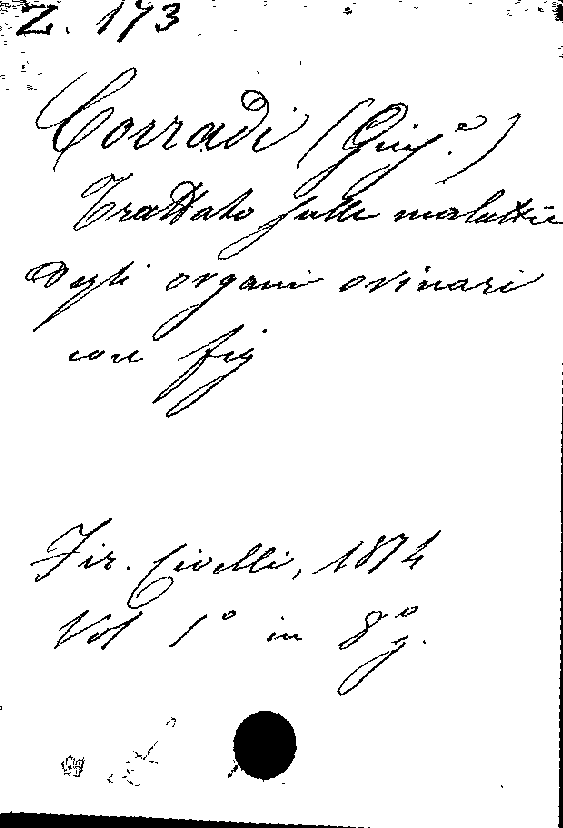 Z. 173
Corradi (Giuy.e)
Trattato sulle malattie
degli organi orinari
con fig
Fir. Civelli, 1874
Vol 1° in 8° g.